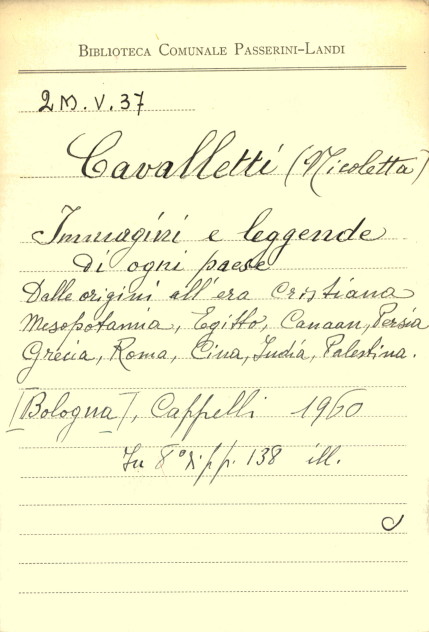 BIBLIOTECA COMUNALE PASSERINI-LANDI
2 M. V. 37
Cavalletti (Nicoletta)
Immagini e leggende
di ogni paese
Dalle origini all'era cristiana
Mesopotamia, Egitto, Canaan, Persia
Grecia, Roma, Cina, India, Palestina.
[Bologna], Cappelli 1960
In 8° pp. 138 ill.